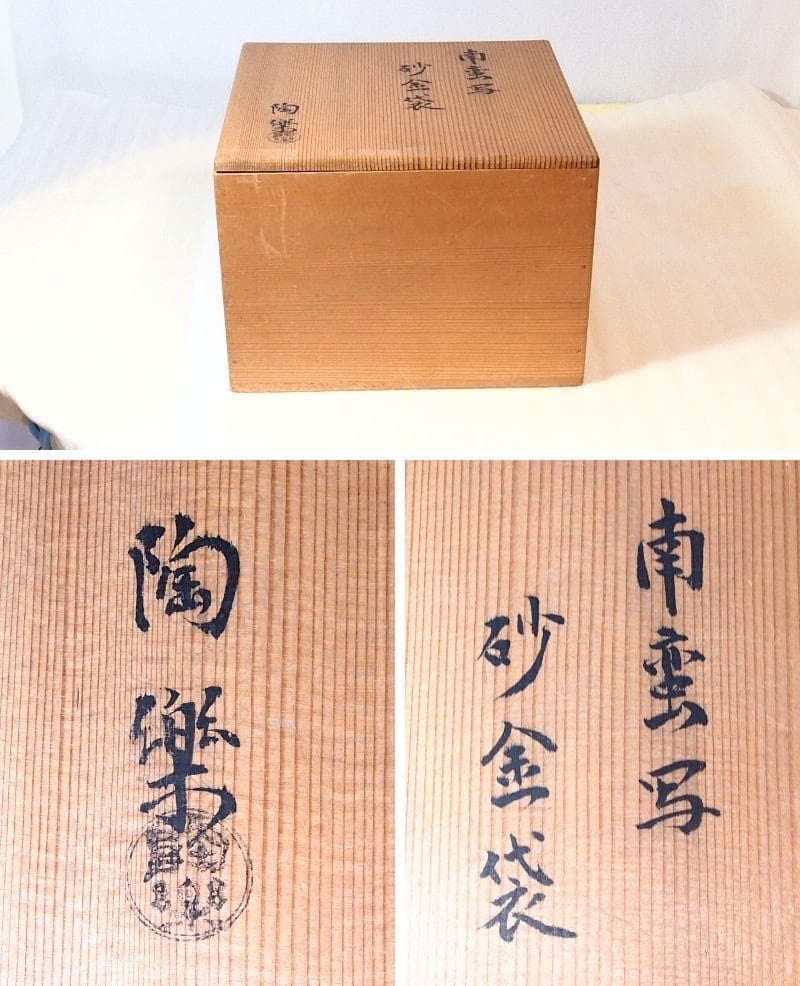 南蛮写
砂金袋
陶樂
陶樂
南蛮写
砂金袋